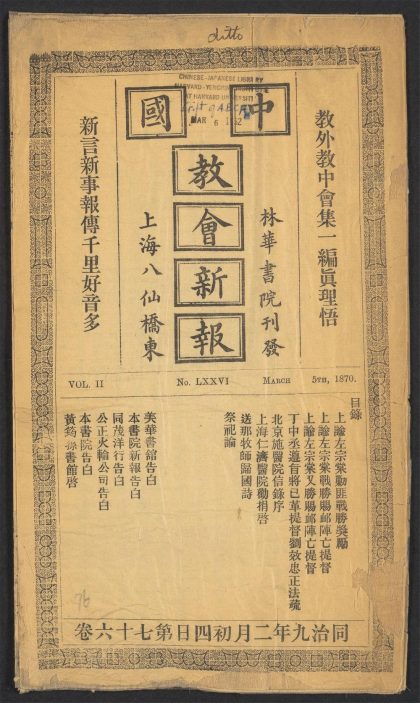 ditto
CHINESE-JAPANESE LIBRARY
HARVARD-YENCHING
AT HARVARD UNIVERSITY
MAR 6 1952
教外教中會集一編眞理悟
中國
教會新報
林華書院刊發
上海八仙橋東
新言新事報傳千里好音多
VOL. II No. LXXVI MARCH 5TH, 1870.
目錄
上諭左宗棠勦匪戰勝獎勵
上諭左宗棠戰勝賜卹陣亡提督
上諭左宗棠又勝賜卹陣亡提督
丁中丞遵旨將已革提督劉效忠正法疏
北京施醫院信錄序
上海仁濟醫院勸捐啓
送那牧師歸國詩
祭祀論
美華書館告白
本書院新報告白
同茂洋行告白
公正火輪公司告白
本書院告白
黃鶴孫書館啓
76
同治九年二月初四日第七十六卷